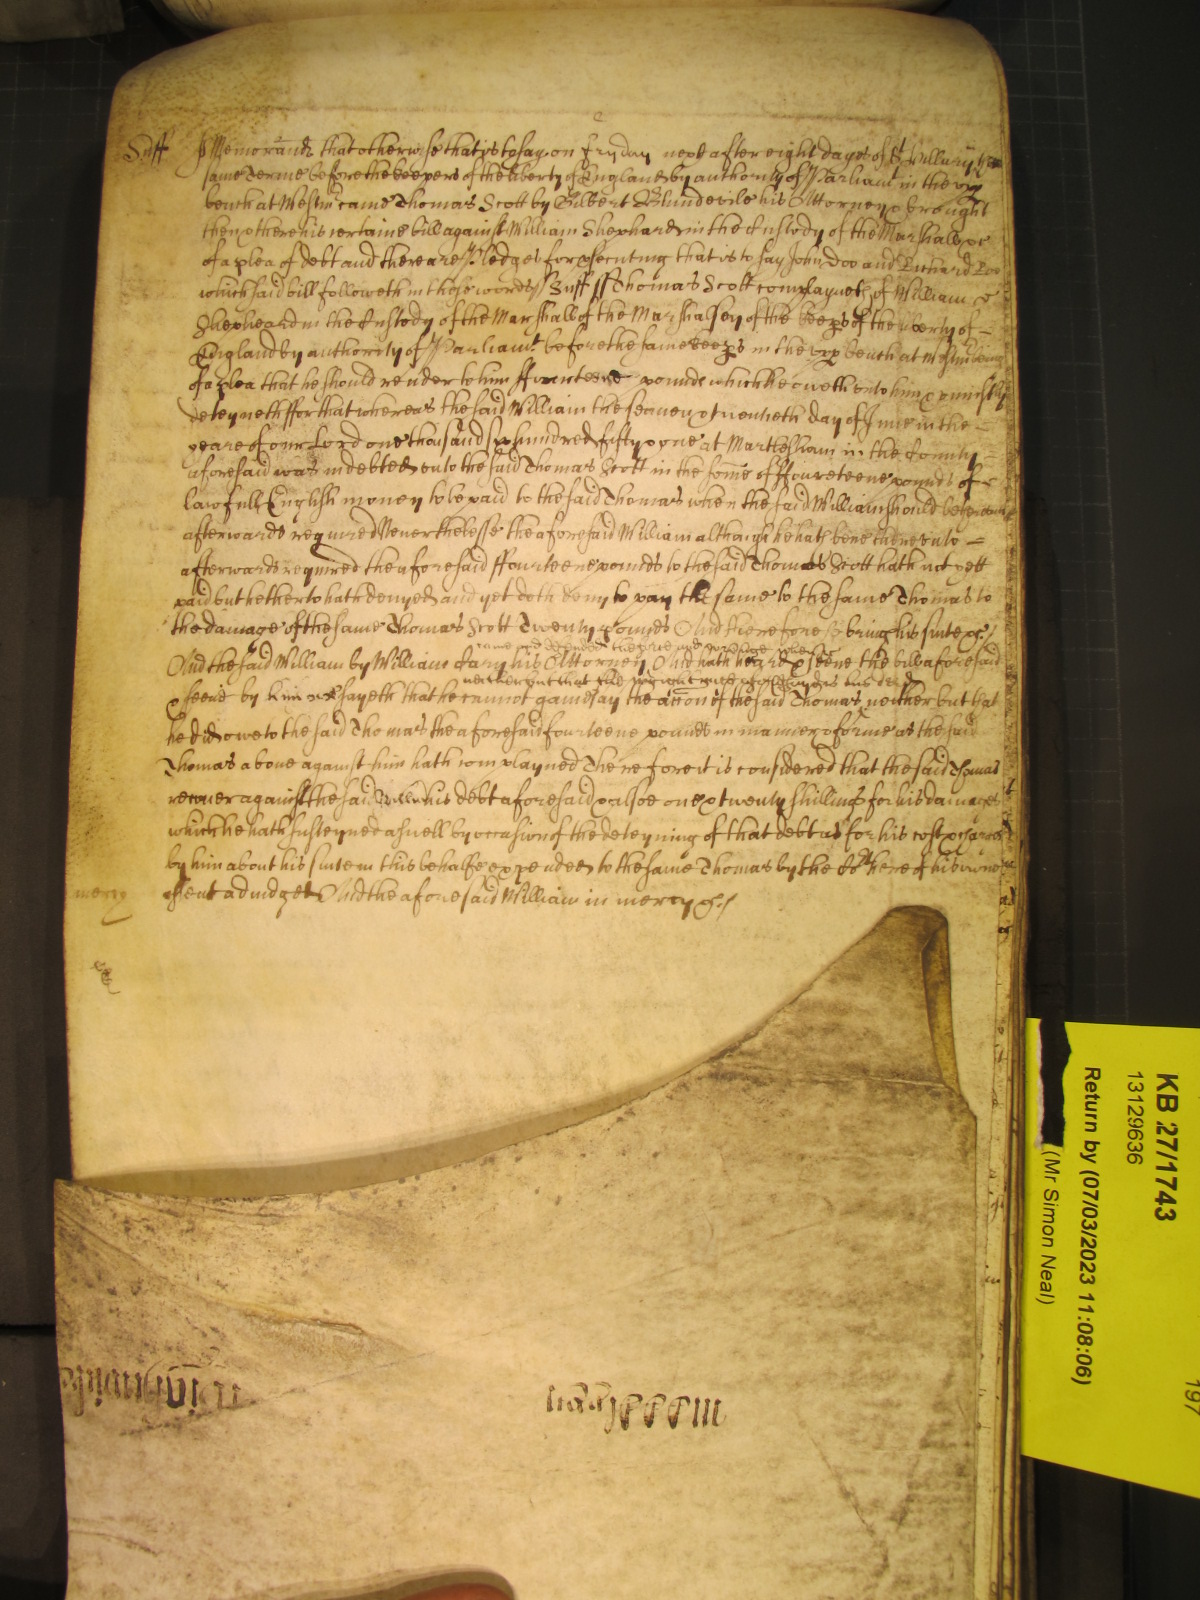 Suff ss Memorand that otherwise that is to say on fryday next after eight dayes of St Hillary this
same Terme before the keepers of the liberty of England by authority of Parliamt in the upp
bench at Westm came Thomas Scott by Gilbert Blundevile his Attorney & brought
then & there his certaine bill against William Shepheard in the Custody of the Marshall &c
of a plea of debt and there are Pledges for psecuting that is to say John Doo and Richard Roo
which said bill followeth in these words Suff ss Thomas Scott complayneth of William
Shepheard in the Custody of the Marshall of the Marshalsey of the keepers of the liberty of
England by authority of Parliamt before the same keepers in the upp bench at Westm being
of a plea that he should render to him ffourteene pounds which he oweth unto him & uniustly
deteyneth ffor that whereas the said William the seaven & twentieth day of June in the
yeare of our Lord one thousand six hundred fifty & one at Martlesham in the County
aforesaid was indebted unto the said Thomas Scott in the some of ffoureteene pounds of
lawfull English money to be paid to the said Thomas when the said William should be thereunto
afterwards required Neverthelesse the aforesaid William although he hath bene thereunto
afterwards required the aforesaid ffourteene pounds to the said Thomas Scott hath not yett
paid but hetherto hath denyed and yet doth deny to pay the same to the same Thomas to
the damage of the same Thomas Scott Twenty pounds And therefore he brings his suite &c
And the said William by William Cary his Attorney
And hath heard & seene the bill aforesaid
& sayeth that he cannot gainesay the accon of the said Thomas neither but that
he did owe to the said Thomas the aforesaid fourteene pounds in manner & forme as the said
Thomas above against him hath complayned Therefore it is considered that the said Thomas
recover against the said William his debt aforesaid & alsoe one & twenty shillings for his damages
which he hath susteyned aswell by occasion of the deteyning of that debt as for his costs & charges
by him about his suite in this behalfe expended to the same Thomas by the Court here of his owne
assent adiudged And the aforesaid William in mercy &c
mercy
KB 27/1743
13129636
Return by (07/03/2023 11:08:06)
(Mr Simon Neal)
197